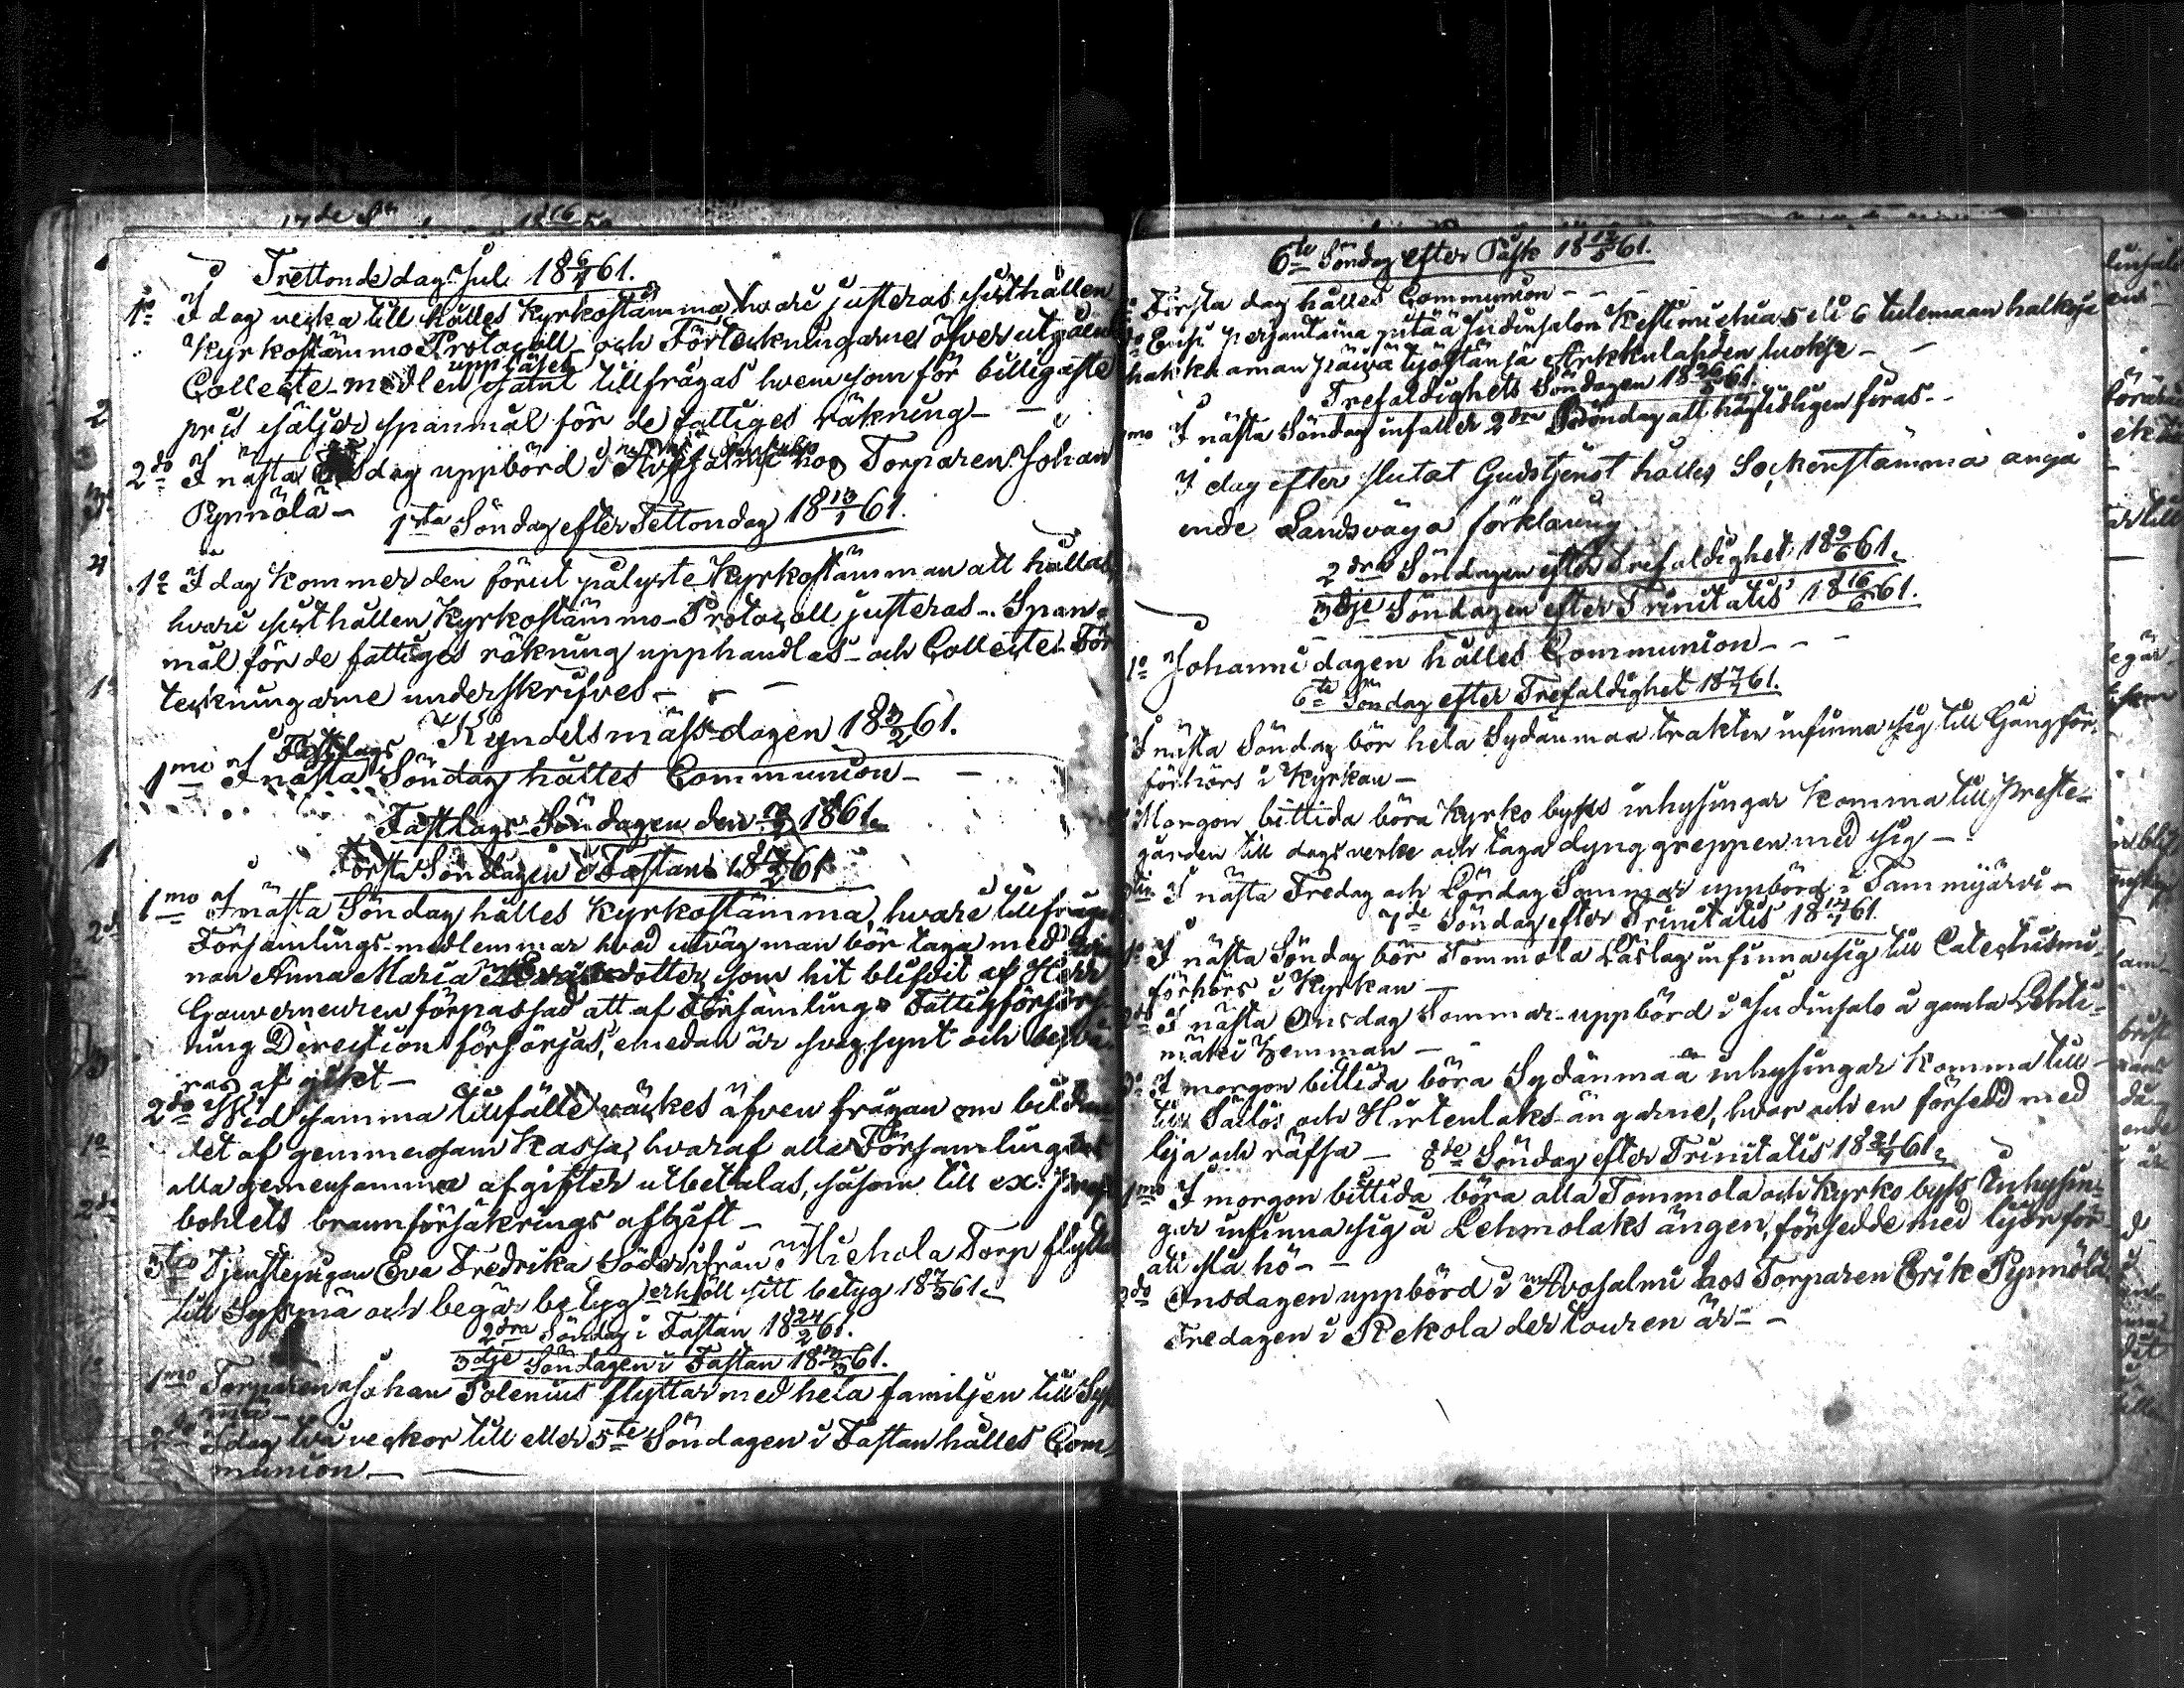 Trettonde dag Jul 18 6/1 61.
1o I dag vecka till hålles Kyrkostämma, hvari justeras sisthållen
Kyrkostämmo Protocoll och Förteckningarne öfver utgående
upplåsen
Collecte-medlen samt tillfrågas hvem som för billigaste
pris säljer spanmål för de fattiges räkning —
2do I nästa dag uppbörd i hos Torparen Johan
Pynnölä —
1sta Söndag efter Tettondag 18 13/1 61.
1o I dag kommer den förut pålyste Kyrkostämman att hållas
hvari sist hållen Kyrkostämmo-Protocoll justeras - Span-
mål för de fattiges räkning upphandlas - och Collecte-För
teckningarne underskrifves —
Kyndelsmäss-dagen 18 3/2 61.
Fastlags
1mo I nästa Söndag hålles Communion —
Fastlags-Söndagen den 1861.
Första Söndagen i Fastan 18 17/2 61
1mo I nästa Söndag hålles Kyrkostämma, hvari tillfrågas
Församlings-medlemmar hvad utväg man bör taga med
nan Anna Maria dotter, som hit blifvit af Herr
Gouverneuren förpassad att af Församlings Fattigförsörj
ning Direction försörjas, emedan är svagsynt och besvä
ras af gikt —
2do Wid samma tillfälle väckes äfven frågan om bildan
det af gemmensam Kassa, hvaraf alla Församlingens
alla gemensamma afgifter utbetalas, såsom till ex:
bohlets brannförsäkrings afgift —
3tio Tjenstepigan Eva Fredrika Söder ifrån Michola Torp flyttar
till Syssmä och begär betyg erhöll sitt betyg 18 61.
2dra Söndag i Fastan 18 24/2 61.
3dje Söndagen i Fastan 18 3/3 61.
1mo Torparen Johan Polenius flyttar med hela familjen till Sys
mä —
2do I dag två veckor till eller 5te Söndagen i Fastan hålles Com
munion —
6te Söndag efter Påsk 18 12/5 61.
Första dag hålles Communion —
Ensi perjantaina pitää Judinsalon Kestimiehiä 5 eli 6 tulemaan halkoja
hakkaamaan päiwätyöstänsä Arkkulahden luokse —
Trefaldighets Söndagen 18 26/5 61.
1mo I nästa Söndag infaller 2dra Bödag att högtidligen firas —
I dag efter slutat Gudstjenst hålles Sockenstämma angå
ende Landsväga förklaring
2dra Söndagen efter Trefaldighet 18 9/6 61.
3dje Söndagen efter Trinitatis 18 16/6 61.
1o Johanni dagen hålles Communion —
6te Söndag efter Trefaldighet 18 7/7 61.
I nästa Söndag bör hela Sydänmaa trakten infinna sig till Gångför-
förhörs i Kyrkan —
Morgon bittida böra Kyrko byns inhysingar komma till Preste-
gården till dagsverke och taga dynggreppen med sig —
I nästa Fredag och Lördag Sommar uppbörd i Tammijärvi —
7de Söndag efter Trinitatis 18 14/7 61.
1o I nästa Söndag bör Tommola Läslag infinna sig till Catechismi
förhörs i Kyrkan —
2do I nästa Onsdag Sommar-uppbörd i Judinsalo å gamla Lehti-
mäki hemman —
I morgon bittida böra Sydänmaa inhysingar komma till
till Sailos och Hirtenlaks ängarne, hvar och en försedd med
lija och räfsa — 8de Söndag efter Trinitatis 18 21/7 61.
1mo I morgon bittida böra alla Tommola och Kyrko byss Inhysin-
gar infinna sig å Lehmolaks ängen, försedde med lijor för
att slå hö —
2do Onsdagen uppbörd i Avosalmi hos Torparen Erik Pynnölä
Fredagen i Rekola der touren är —